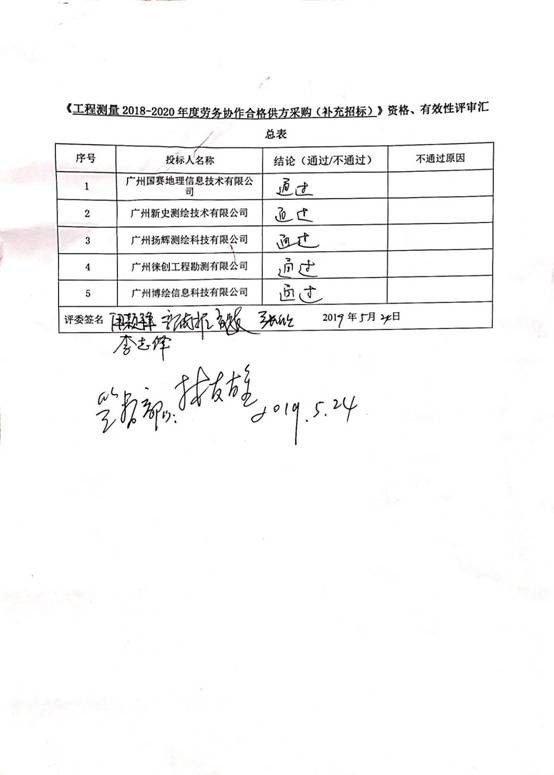 《工程测量2018-2020年度劳务协作合格供方采购（补充招标）》资格、有效性评审汇
总表
序号 投标人名称 结论（通过/不通过） 不通过原因
1 广州国赛地理信息技术有限公司 通过
2 广州新史测绘技术有限公司 通过
3 广州扬辉测绘科技有限公司 通过
4 广州徕创工程勘测有限公司 通过
5 广州博绘信息科技有限公司 通过
评委签名 2019年5月24日
李志锋
监督部门：
2019.5.24